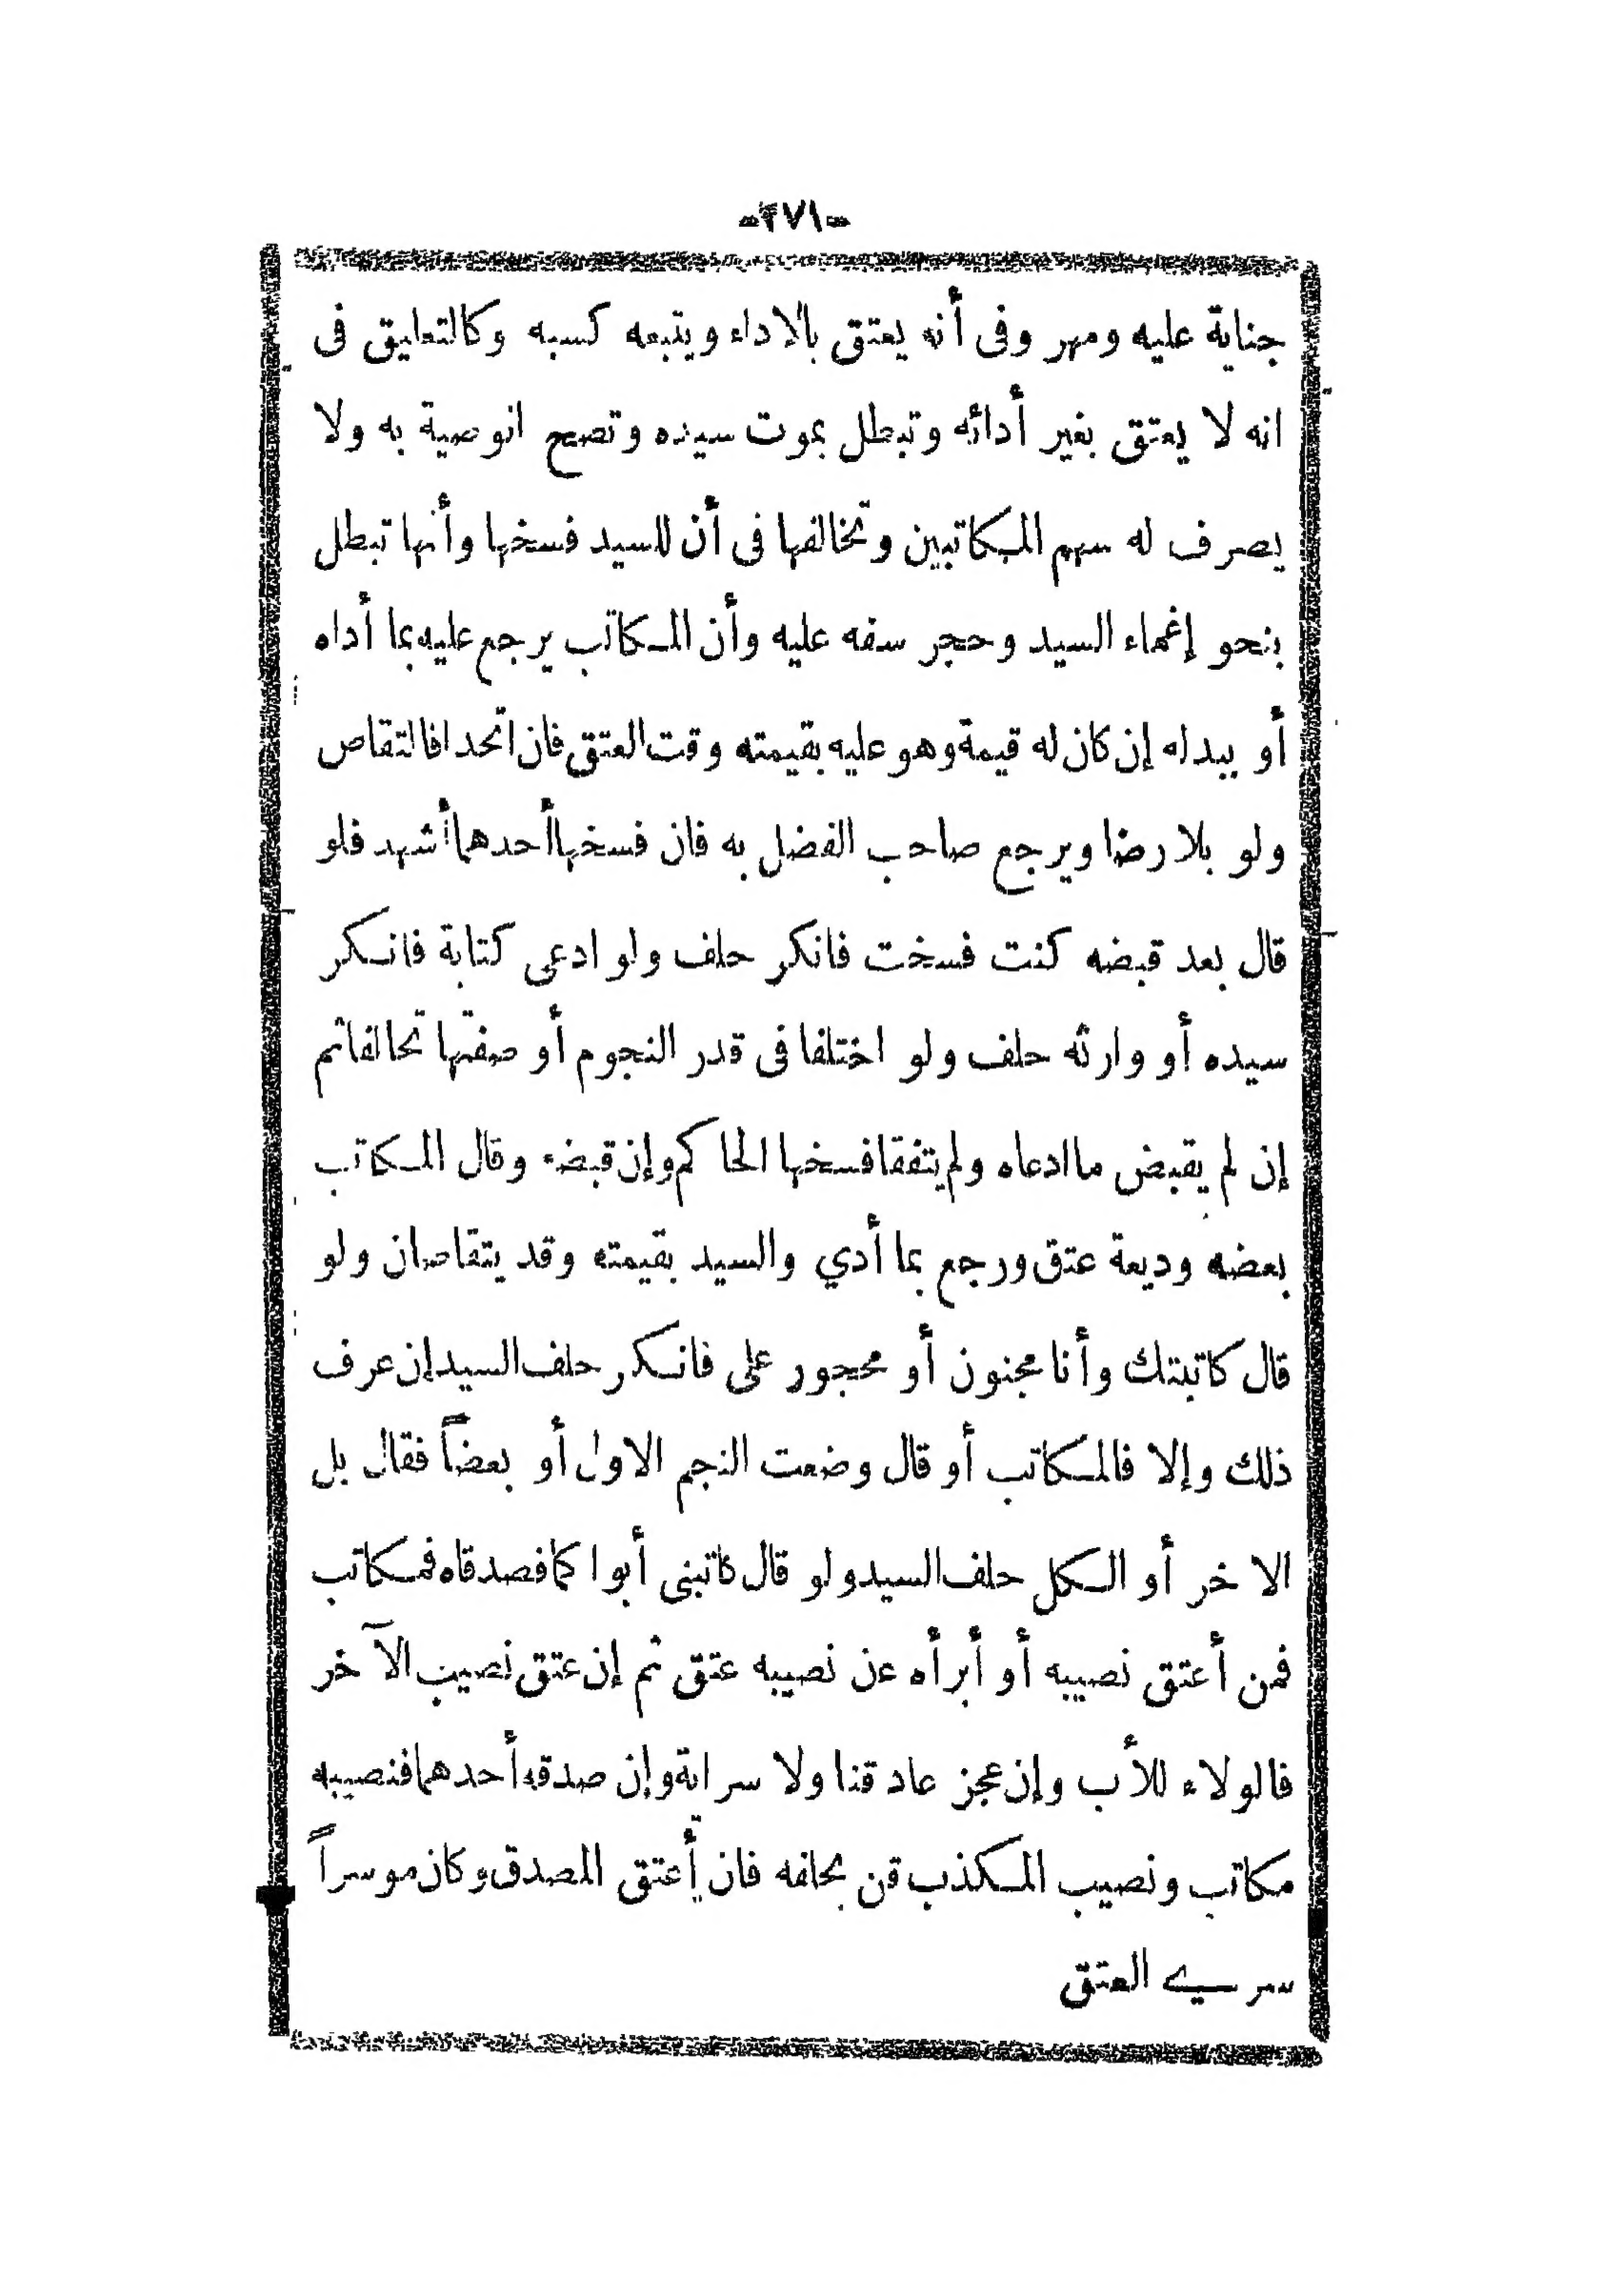 -٢٧١-
جناية عليه ومهر وفى أنه يعتق بالاداء ويتبعه كسبه وكالتعليق فى
انه لا يعتق بغير أدائه وتبطل بموت سيده وتصح الوصية به ولا
يصرف له سهم المكاتبين وتخالفها فى أن للسيد فسخها وأنها تبطل
بنحو إغماء السيد وحجر سفه عليه وأن المكاتب يرجع عليه بما أداه
أو ببدله إن كان له قيمة وهو عليه بقيمته وقت العتق فان اتحدا فالتقاص
ولو بلا رضا ويرجع صاحب الفضل به فان فسخها أحدهما أشهد فلو
قال بعد قبضه كنت فسخت فانكر حلف ولو ادعى كتابة فانكر
سيده أو وارثه حلف ولو اختلفا فى قدر النجوم أو صفتها تحالفا ثم
إن لم يقبض ما ادعاه ولم يتفقا فسخها الحاكم وإن قبضه وقال المكاتب
بعضه وديعة عتق ورجع بما أدي والسيد بقيمته وقد يتقاصان ولو
قال كاتبتك وأنا مجنون أو محجور على فانكر حلف السيد إن عرف
ذلك وإلا فالمكاتب أو قال وضعت النجم الاول أو بعضاً فقال بل
الاخر أو الكل حلف السيد ولو قال كاتبنى أبوا كما فصدقاه فمكاتب
فمن أعتق نصيبه أو أبرأه عن نصيبه عتق ثم إن عتق نصيب الآخر
فالولاء للأب وإن عجز عاد قنا ولا سراية وإن صدقه أحدهما فنصيبه
مكاتب ونصيب المكذب قن بحلفه فان أعتق المصدق وكان موسراً
سري العتق